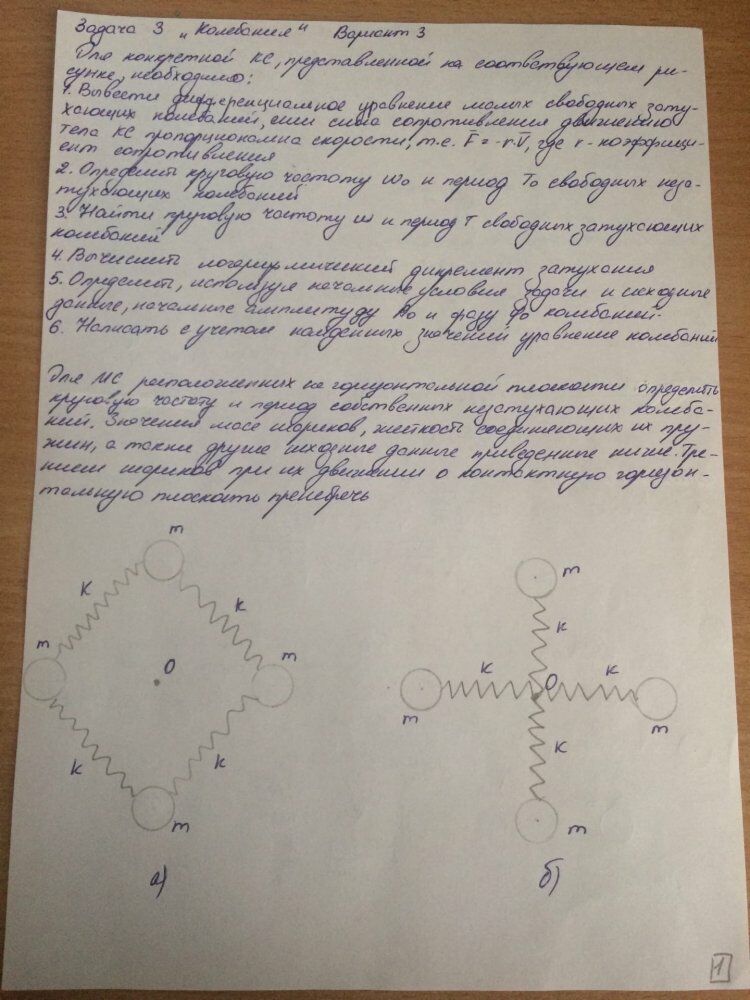 Задача 3 „Колебания" Вариант 3
Для конкретной КС, представленной на соответствующем ри-
сунке, необходимо:
1. Вывести дифференциальное уравнение малых свободных зату-
хающих колебаний, если сила сопротивления движению
тела КС пропорциональна скорости, т.е. F̄ = -rV̄, где r - коэффици-
ент сопротивления
2. Определить круговую частоту ω₀ и период T₀ свободных неза-
тухающих колебаний
3. Найти круговую частоту ω и период T свободных затухающих
колебаний
4. Вычислить логарифмический декремент затухания
5. Определить, используя начальные условия задачи и исходные
данные, начальные амплитуду A₀ и фазу φ₀ колебаний.
6. Написать с учетом найденных значений уравнение колебаний
Для МС расположенных на горизонтальной плоскости определить
круговую частоту и период собственных незатухающих колеба-
ний. Значения масс шариков, жесткость соединяющих их пру-
жин, а также другие исходные данные приведенные ниже. Тре-
нием шариков при их движении о контактную горизон-
тальную плоскость пренебречь
m
K
K
m
O
m
K
K
m
а)
m
K
K
O
K
m
m
K
m
б)
1